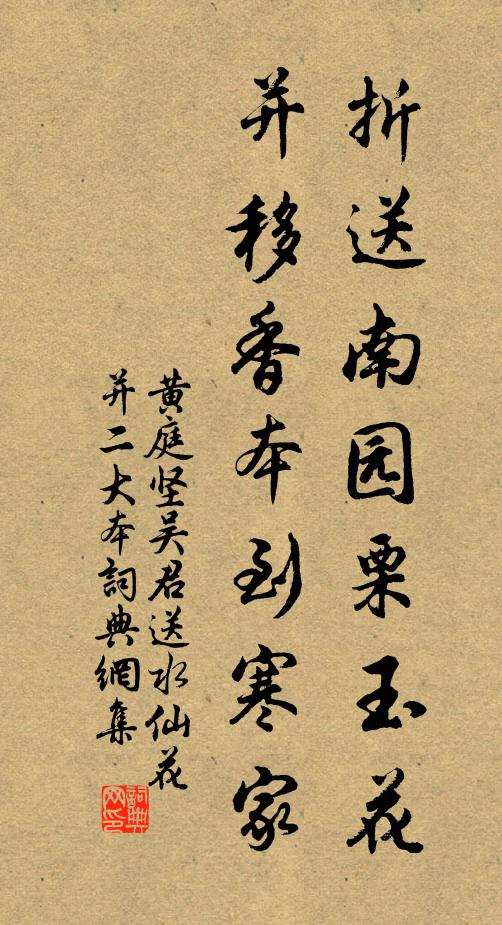 折送南园栗玉花
并移香本到寒家
黄庭坚吴君送水仙花
并二大本詞典網集